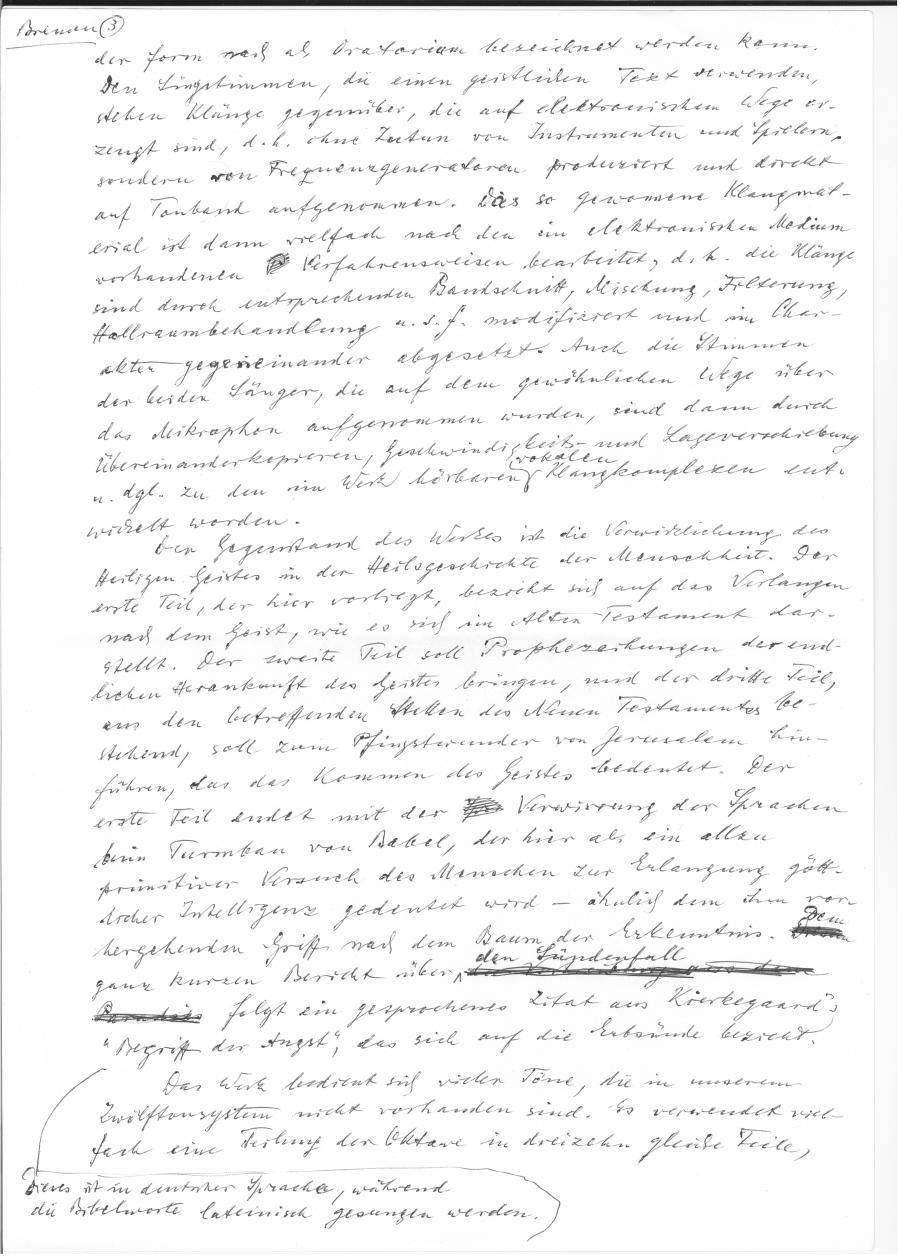 Bremen ③
der Form nach als Oratorium bezeichnet werden kann.
Den Singstimmen, die einen geistlichen Text verwenden,
stehen Klänge gegenüber, die auf elektronischem Wege er-
zeugt sind, d.h. ohne Zutun von Instrumenten und Spielern,
sondern von Frequenzgeneratoren produziert und direkt
auf Tonband aufgenommen. Das so gewonnene Klangmat-
erial ist dann vielfach nach den im elektronischen Medium
vorhandenen Verfahrensweisen bearbeitet, d.h. die Klänge
sind durch entsprechenden Bandschnitt, Mischung, Filterung,
Hallraumbehandlung u.s.f. modifiziert und im Char-
akter gegeneinander abgesetzt. Auch die Stimmen
der beiden Sänger, die auf dem gewöhnlichen Wege über
das Mikrophon aufgenommen wurden, sind dann durch
Übereinanderkopieren, Geschwindigkeits- und Lageverschiebung
u. dgl. zu den im Werk hörbaren vokalen Klangkomplexen ent-
wickelt worden.
Der Gegenstand des Werkes ist die Verwirklichung des
Heiligen Geistes in der Heilsgeschichte der Menschheit. Der
erste Teil, der hier vorliegt, bezieht sich auf das Verlangen
nach dem Geist, wie es sich im Alten Testament dar-
stellt. Der zweite Teil soll Prophezeihungen der end-
lichen Herankunft des Geistes bringen, und der dritte Teil,
aus den betreffenden Stellen des Neuen Testamentes be-
stehend, soll zum Pfingstwunder von Jerusalem hin-
führen, das das Kommen des Geistes bedeutet. Der
erste Teil endet mit der Verwirrung der Sprachen
beim Turmbau von Babel, der hier als ein allzu
primitiver Versuch des Menschen zur Erlangung gött-
licher Intelligenz gedeutet wird – ähnlich dem ihm vor-
hergehenden Griff nach dem Baum der Erkenntnis. Dem
ganz kurzen Bericht über den Sündenfall
folgt ein gesprochenes Zitat aus Kierkegaard's
"Begriff der Angst", das sich auf die Erbsünde bezieht.
Das Werk bedient sich vieler Töne, die in unserem
Zwölftonsystem nicht vorhanden sind. Es verwendet viel-
fach eine Teilung der Oktave in dreizehn gleiche Teile,
Dieses ist in deutscher Sprache, während
die Bibelworte lateinisch gesungen werden.